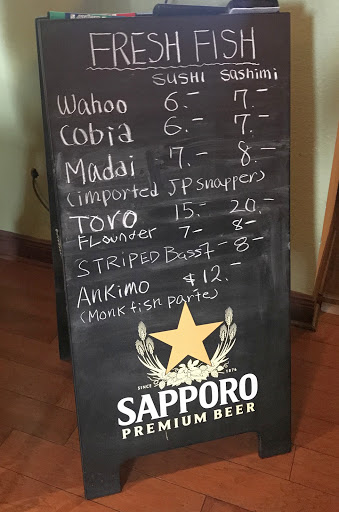 FRESH FISH
SUSHI Sashimi
Wahoo 6.- 7.-
Cobia 6.- 7.-
Madai 7.- 8.-
(imported JP snapper)
TORO 15.- 20.-
FLounder 7- 8-
STRIPED Bass 7- 8-
Ankimo $12.-
(Monk fish parte)
SINCE 1876
SAPPORO
PREMIUM BEER